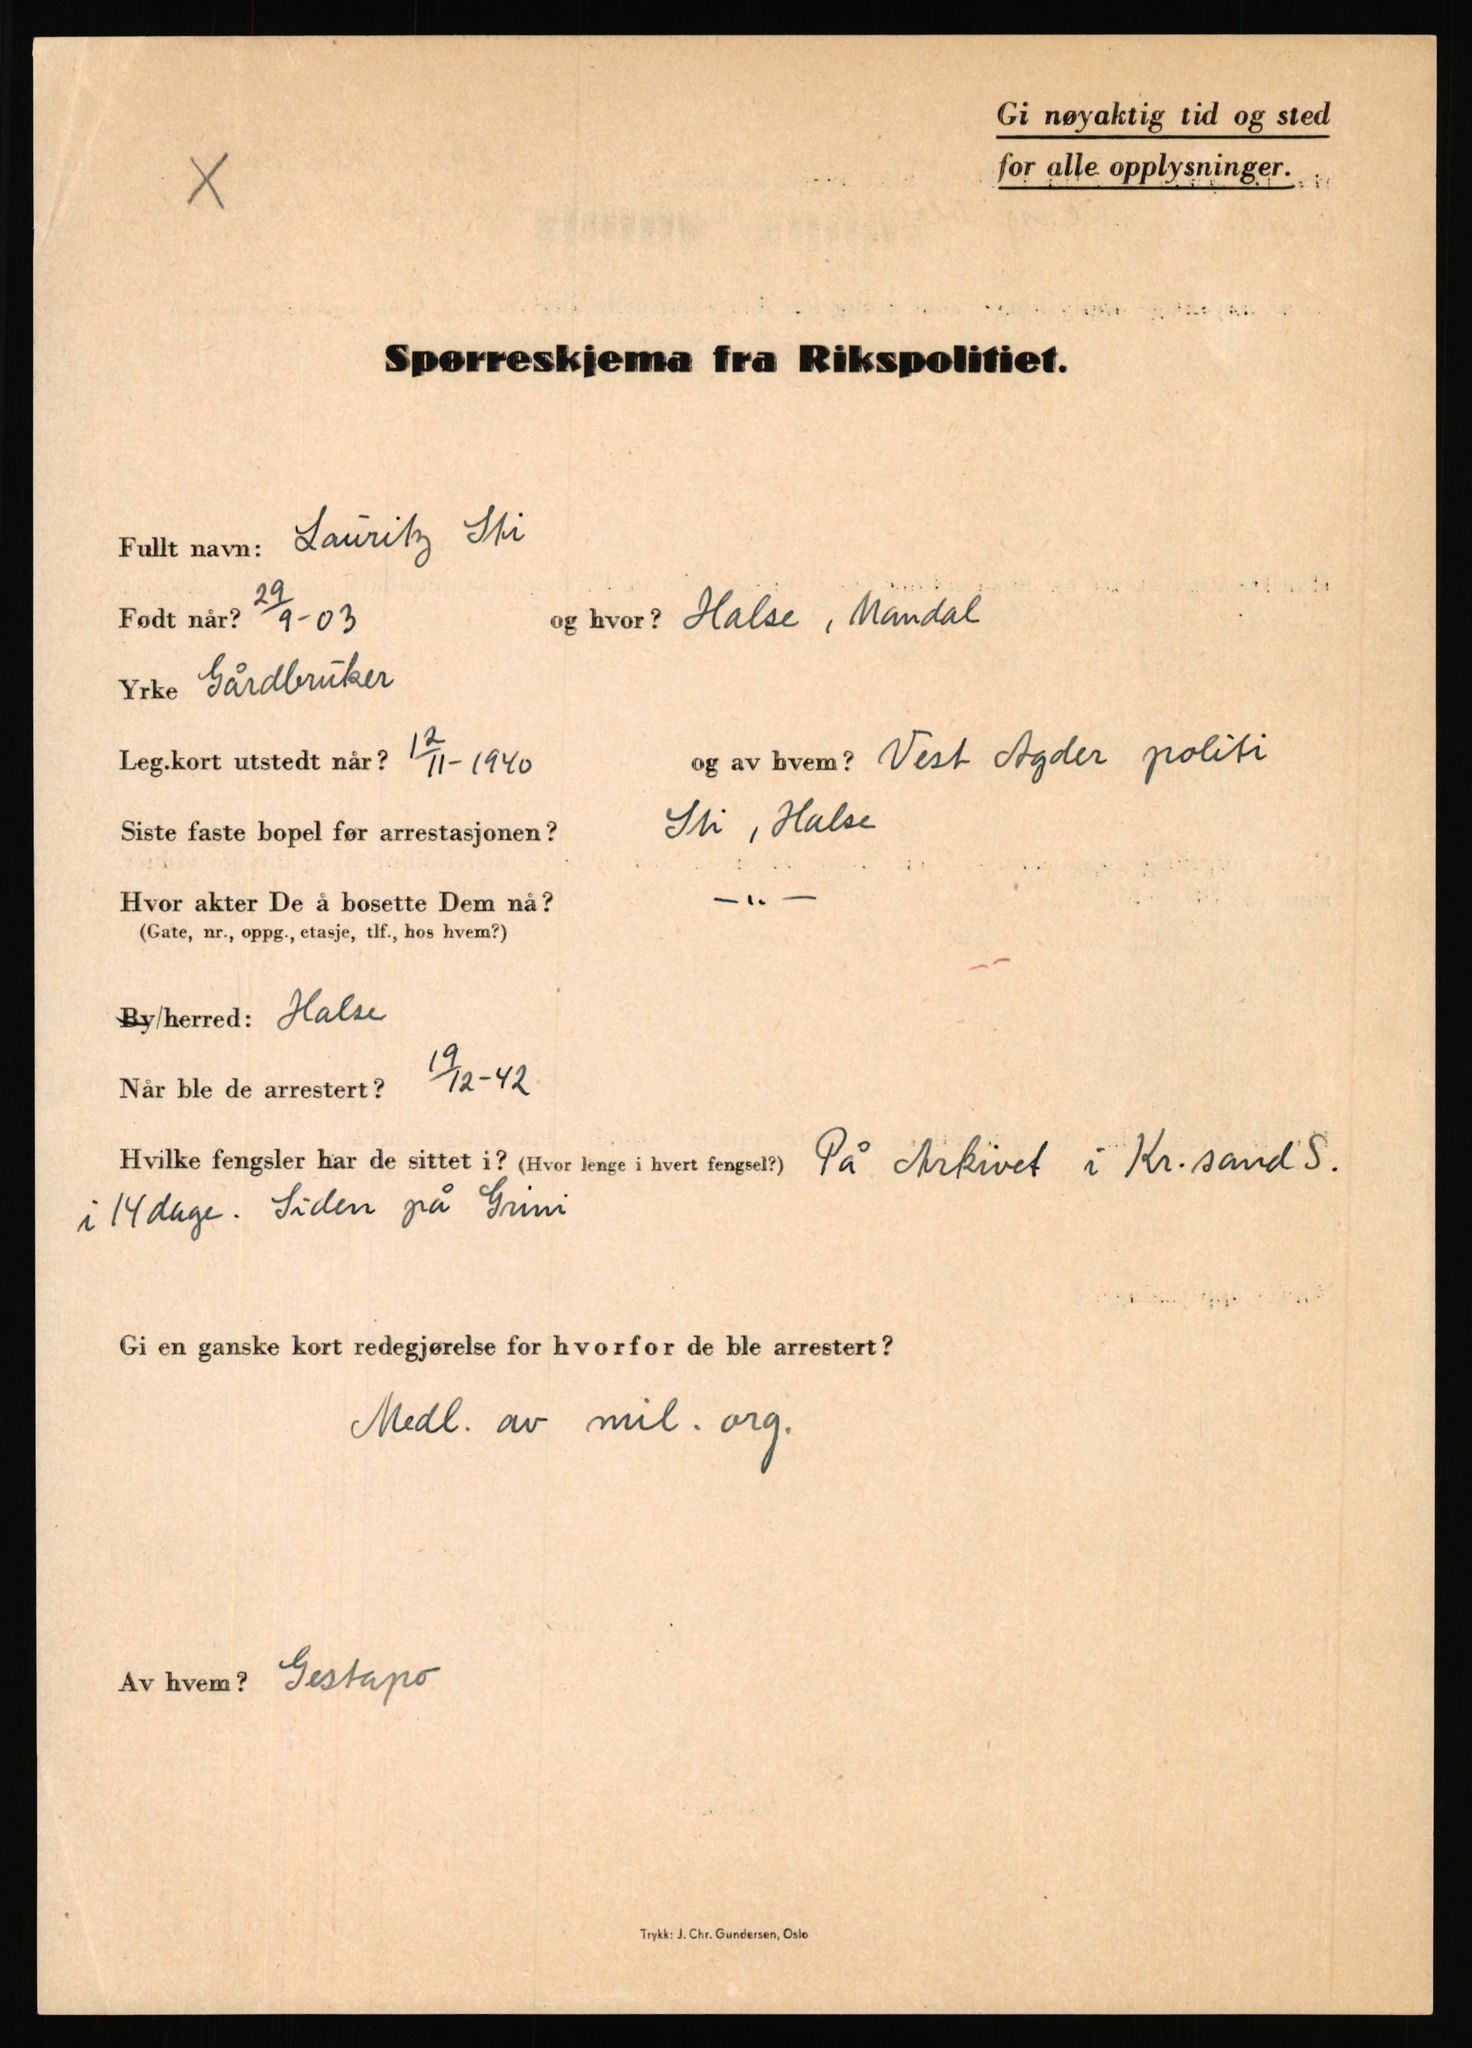 Gi nøyaktig tid og sted
for alle opplysninger.
X
Spørreskjema fra Rikspolitiet.
Fullt navn: Lauritz Sti
Født når? 29/9-03 og hvor? Halse, Mandal
Yrke Gårdbruker
Leg.kort utstedt når? 12/11-1940 og av hvem? Vest Agder politi
Siste faste bopel før arrestasjonen? Sti, Halse
Hvor akter De å bosette Dem nå? —"—
(Gate, nr., oppg., etasje, tlf., hos hvem?)
By/herred: Halse
Når ble de arrestert? 19/12-42
Hvilke fengsler har de sittet i? (Hvor lenge i hvert fengsel?) På Arkivet i Kr.sand S.
i 14 dage. Siden på Grini
Gi en ganske kort redegjørelse for hvorfor de ble arrestert?
Medl. av mil. org.
Av hvem? Gestapo
Trykk: J. Chr. Gundersen, Oslo